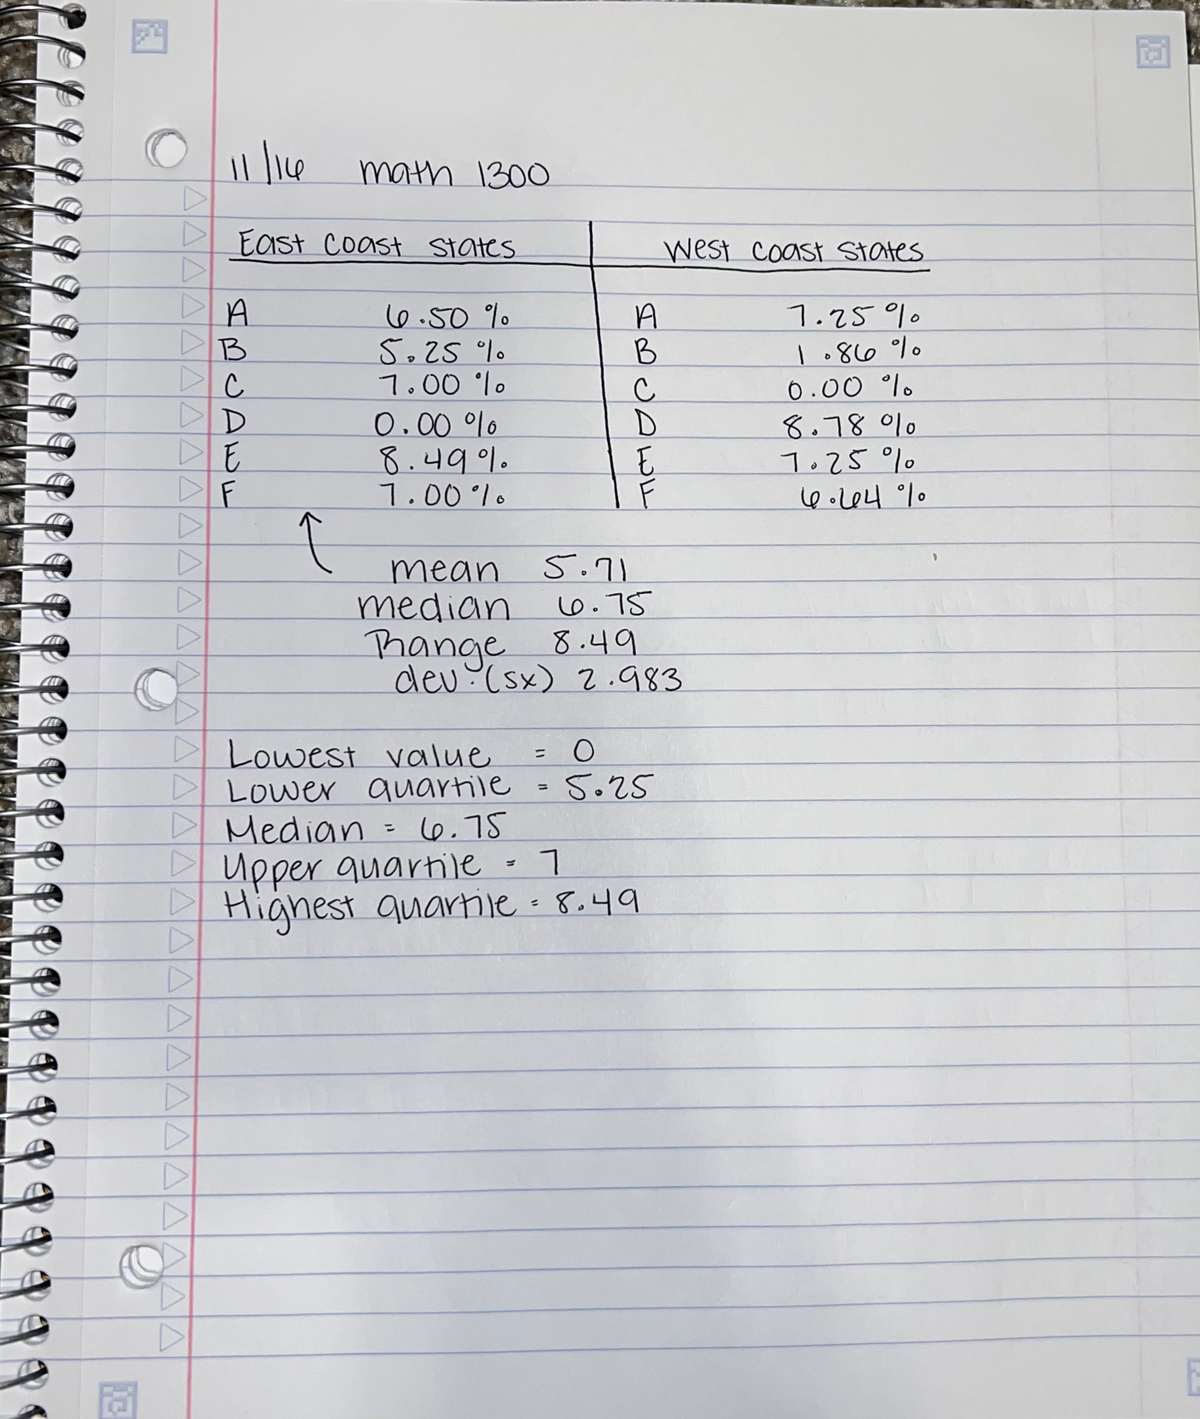 11/16 math 1300
East coast states West coast states
A 6.50 % A 7.25 %
B 5.25 % B 1.86 %
C 7.00 % C 0.00 %
D 0.00 % D 8.78 %
E 8.49 % E 7.25 %
F 7.00 % F 6.64 %
mean 5.71
median 6.75
Range 8.49
dev. (sx) 2.983
Lowest value = 0
Lower quartile = 5.25
Median = 6.75
Upper quartile = 7
Highest quartile = 8.49